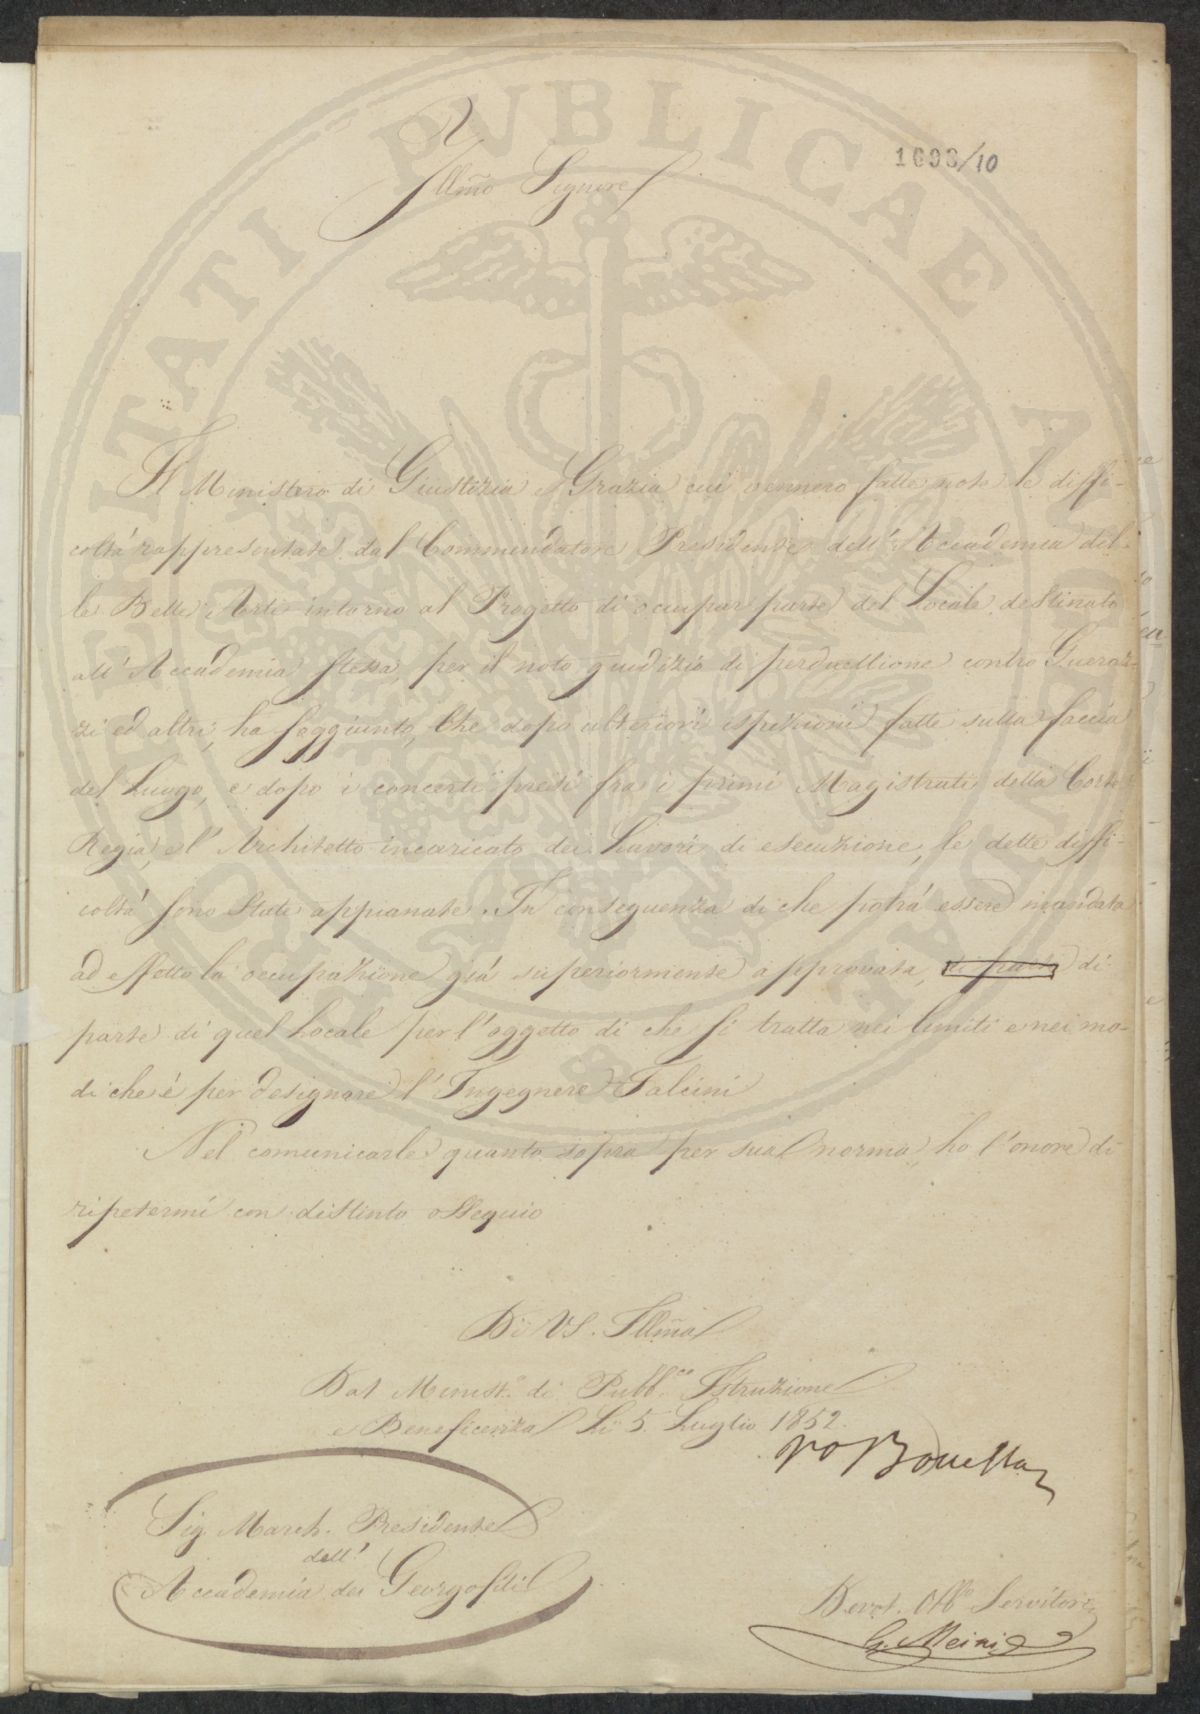 1693/10
Illmo Signore
Il Ministro di Giustizia e Grazia cui vennero fatte note le diffi-
coltà rappresentate dal Commendatore Presidente dell'Accademia del-
le Belle Arti intorno al Progetto di occupar parte del Locale destinato
all'Accademia stessa, per il noto giudizio di perduellione contro Gueraz-
zi ed altri, ha soggiunto, che dopo ulteriori ispezioni fatte sulla faccia
del Luogo, e dopo i concerti presi fra i primi Magistrati della Corte
Regia, e l'Architetto incaricato dei Lavori di esecuzione, le dette diffi-
coltà sono state appianate. In conseguenza di che potrà essere mandata
ad effetto la occupazione già superiormente approvata, di parte di
parte di quel Locale per l'oggetto di che si tratta nei limiti e nei mo-
di che è per designare l'Ingegnere Falcini
Nel comunicarle quanto sopra per sua norma, ho l'onore di
ripetermi con distinto ossequio
Di VS. Illma
Dal Minist.o di Pubb.ca Istruzione
e Beneficenza Li 5 Luglio 1852.
Sig. March. Presidente
dell'
Accademia dei Georgofili
Devot. Obb. Servitore
G. Meini
PUBLICAE
PROSPERITATI
AUGENDAE